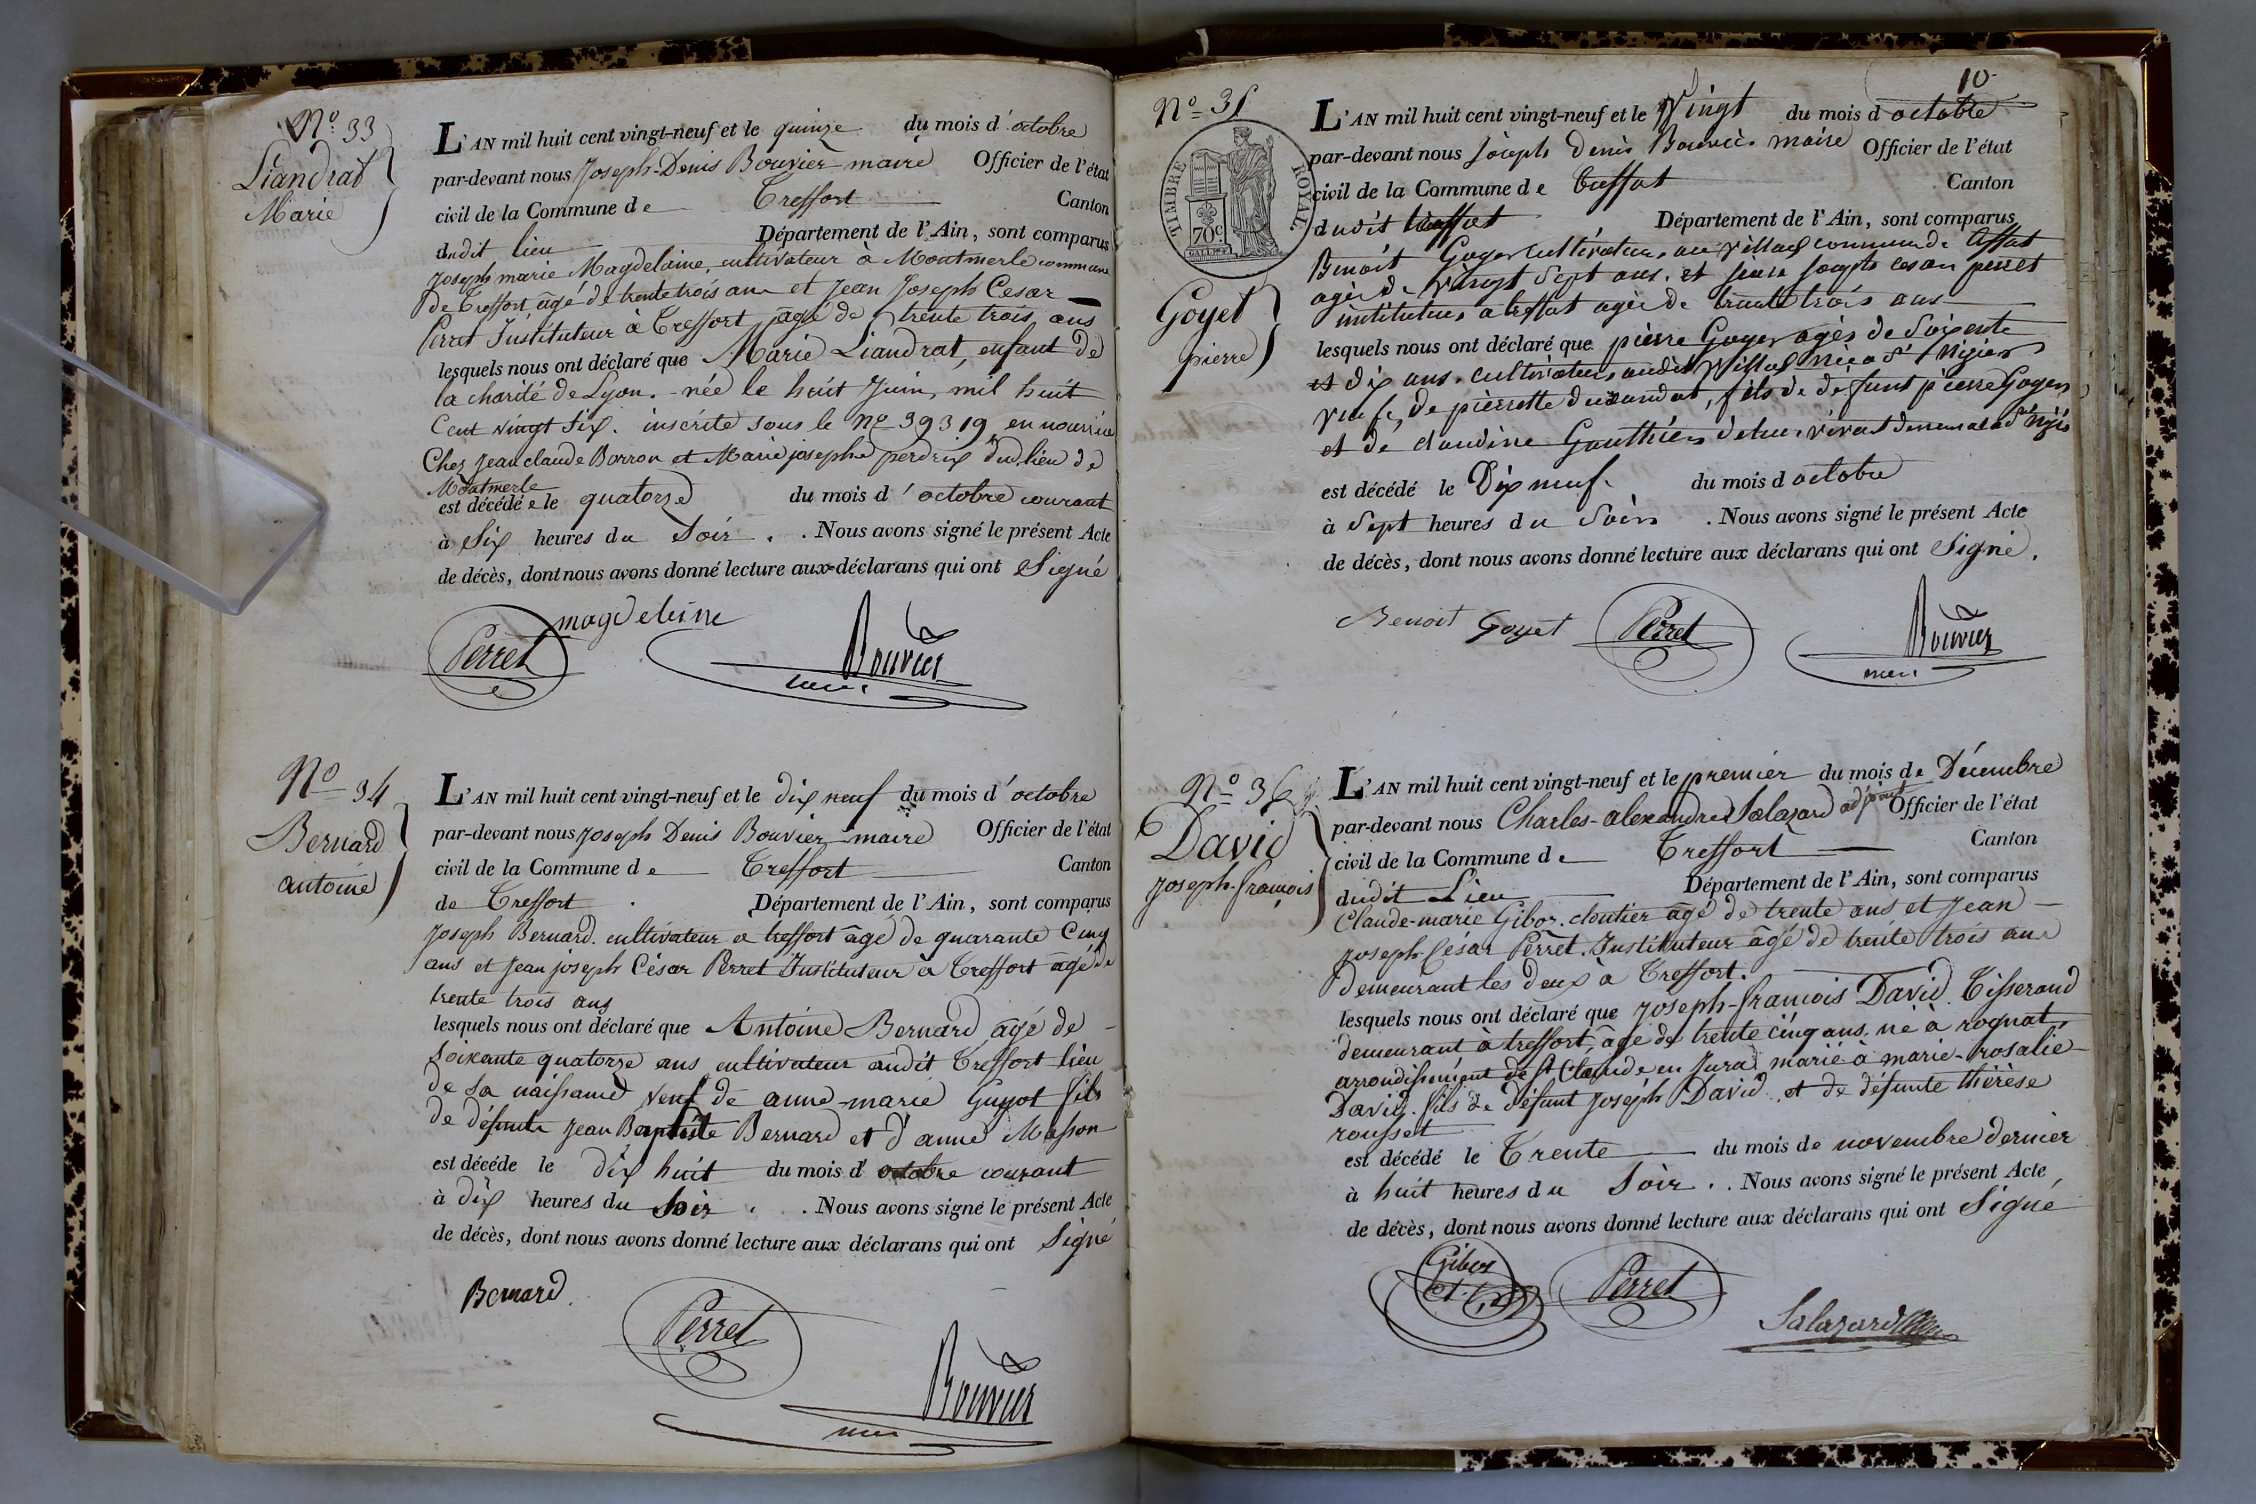 N° 33
Liandrat
Marie
L'AN mil huit cent vingt-neuf et le quinze du mois d'octobre
par-devant nous Joseph-Denis Bouvier maire Officier de l'état
civil de la Commune de Treffort Canton
dudit lieu Département de l'Ain, sont comparus
Joseph marie Magdelaine, cultivateur à Montmerle commune
de Treffort, âgé de trente trois ans et Jean Joseph Cesar
Perret Instituteur à Treffort âgé de trente trois ans
lesquels nous ont déclaré que Marie Liandrat, enfant de
la charité de Lyon. née le huit Juin, mil huit
Cent vingt six. inscrite sous le N° 39319 en nourrice
Chez Jean claude Borron et Marie josephe perdrix dud. lieu de
Montmerle
est décédée le quatorze du mois d'octobre courant
à Six heures du Soir. . Nous avons signé le présent Acte
de décès, dont nous avons donné lecture aux déclarans qui ont Signé
magdeleine
Perret
Bouvier
N° 34
Bernard
antoine
L'AN mil huit cent vingt-neuf et le dix neuf du mois d'octobre
par-devant nous Joseph Denis Bouvier maire Officier de l'état
civil de la Commune de Treffort Canton
de Treffort . Département de l'Ain, sont comparus
Joseph Bernard. cultivateur a treffort âgé de quarante Cinq
ans et Jean joseph César Perret Instituteur à Treffort âgé de
trente trois ans
lesquels nous ont déclaré que Antoine Bernard âgé de
Soixante quatorze ans cultivateur audit Treffort lieu
de sa naissance veuf de anne-marie Guyot fils
de défunts Jean Baptiste Bernard et d'anne Masson
est décédé le dix huit du mois d'octobre courant
à dix heures du Soir . . Nous avons signé le présent Acte
de décès, dont nous avons donné lecture aux déclarans qui ont Signé
Bernard
Perret
Bouvier
10
N° 35
TIMBRE ROYAL
70c
Goyet
pierre
L'AN mil huit cent vingt-neuf et le Vingt du mois d octobre
par-devant nous Joseph Denis Bouvier maire Officier de l'état
civil de la Commune de treffort Canton
dudit treffort Département de l'Ain, sont comparus
Benoit Goyet cultivateur au Villard commune de treffort
agé de Vingt Sept ans. et jean joseph cesar perret
instituteur a treffort agé de trente trois ans
lesquels nous ont déclaré que pierre Goyet agés de Soixente
et dix ans. cultivateur audit Villard née a St Nizier
veufe, de pierrette durandat, fils de defunt pierre Goyet
et de claudine Gauthier
est décédé le Dix neuf du mois d octobre
à Sept heures du Soir . Nous avons signé le présent Acte
de décès, dont nous avons donné lecture aux déclarans qui ont Signé.
Benoit Goyet
Perret
Bouvier
N° 36
David
Joseph-françois
L'AN mil huit cent vingt-neuf et le premier du mois de Décembre
par-devant nous Charles-alexandre Salazard adjoint Officier de l'état
civil de la Commune de Treffort Canton
dudit Lieu Département de l'Ain, sont comparus
Claude-marie Gibor. cloutier âgé de trente ans et Jean
joseph César Perret. Instituteur âgé de trente trois ans
demeurant les deux à Treffort.
lesquels nous ont déclaré que Joseph-françois David. Tisserand
demeurant à treffort, âgé de trente cinq ans, né à rognat,
arrondissement de St Claude en Jura marié à marie-rosalie
David. fils de défunt Joseph David et de défunte thérèse
rousset
est décédé le Trente du mois de novembre dernier
à huit heures du Soir. . Nous avons signé le présent Acte
de décès, dont nous avons donné lecture aux déclarans qui ont Signé
Gibor
Perret
Salazard